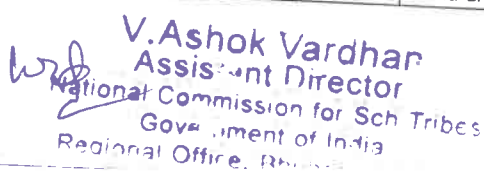 V.Ashok Vardhan
Assistant Director
National Commission for Sch Tribes
Government of India
Regional Office,